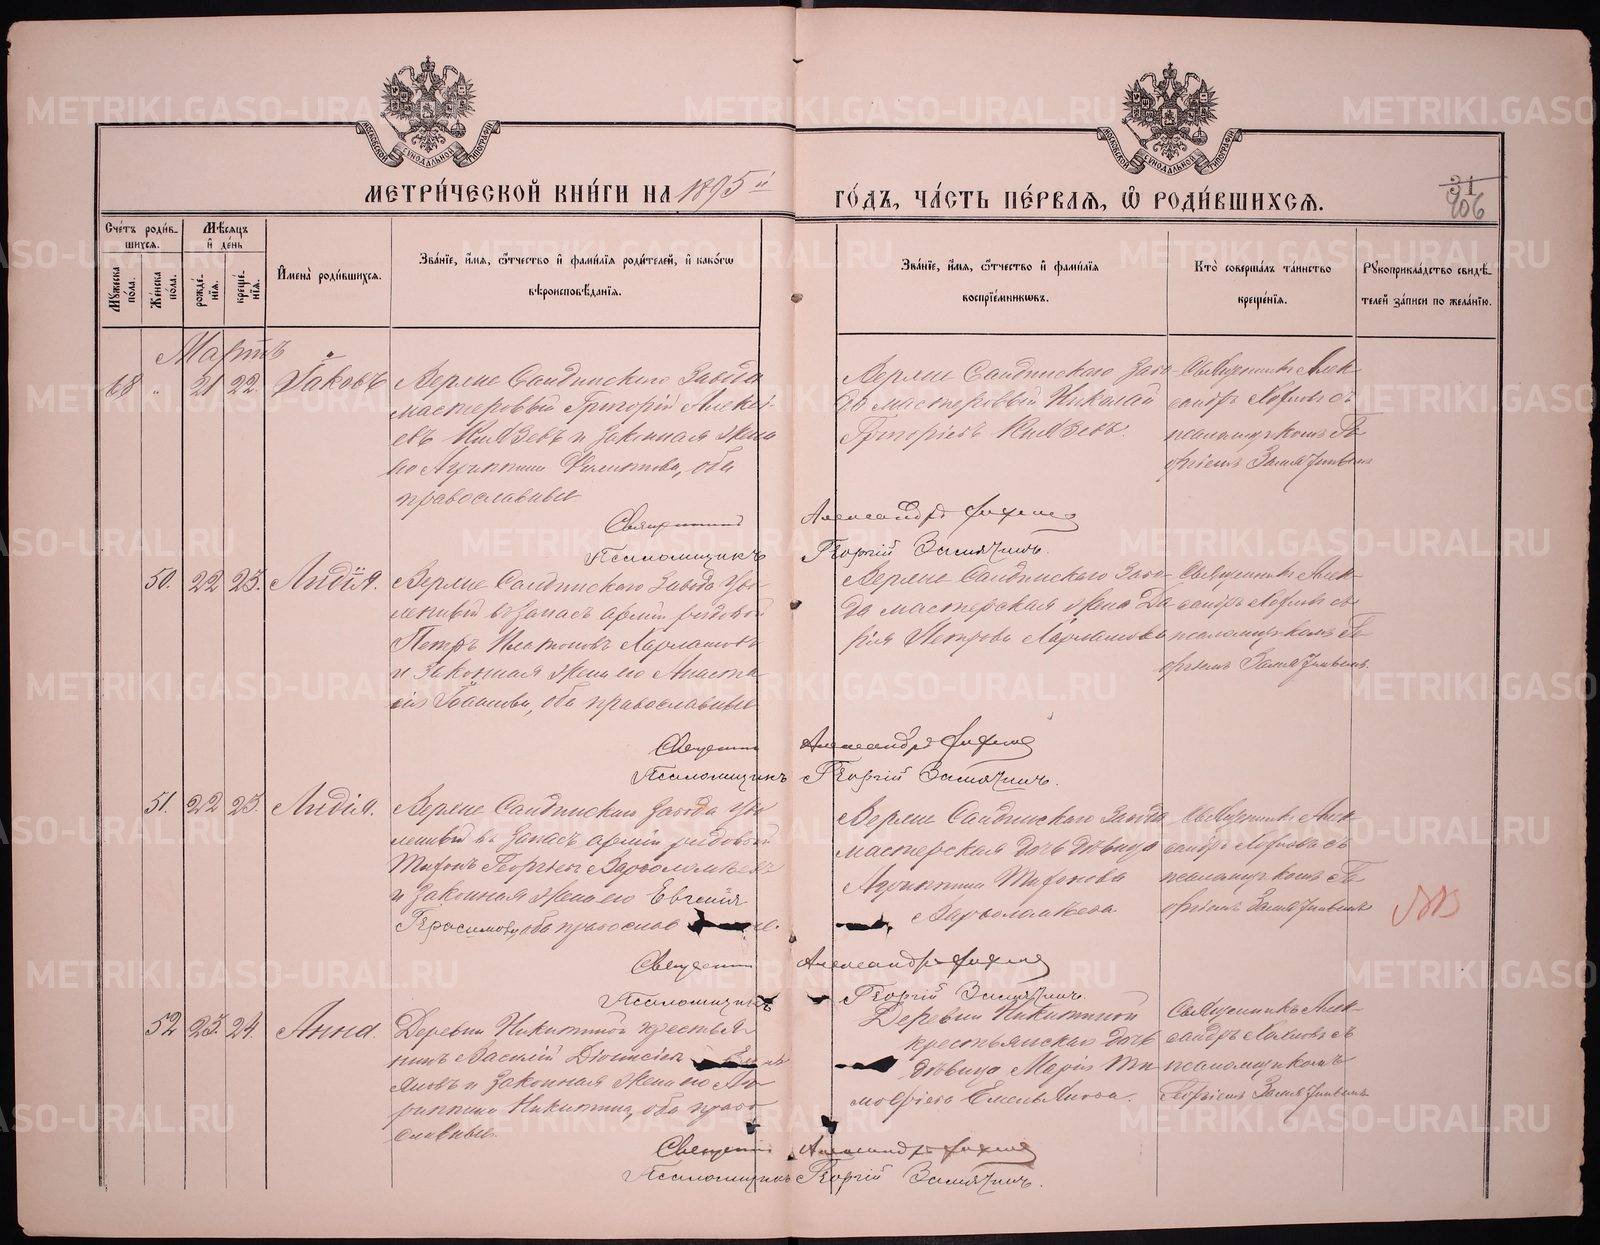 МЕТРИ́ЧЕСКОЙ КНИ́ГИ НА 1895 й
ГО́ДЪ, ЧА́СТЬ ПЕ́РВАЯ, Ѡ РОДИ́ВШИХСЯ.
31
906
Сче́тъ роди́в-
шихся.
Мѣ́сяцъ
и́ де́нь
Му́жеска по́ла.
Же́нска по́ла.
рожде́нїя.
креще́нїя.
И҆мена̀ роди́вшихся.
Зва́нїе, и҆́мя, ѻ҆́тчество и҆ фами́лїя роди́телей, и҆ како́гѡ
вѣроисповѣ́данїя.
Зва́нїе, и҆́мя, ѻ҆́тчество и҆ фами́лїя
воспрїе́мникѡвъ.
Кто̀ соверша́лъ та́инство
креще́нїя.
Рꙋкоприкла́дство свидѣ́-
телей за́писи по жела́нїю.
Мартъ
68 " 21 22 Іаковъ
Верхне Салдинскаго Завода
мастеровый Григорій Алексі-
евъ Князевъ и законная жена
его Агриппина Филиппова, оба
православные
Верхне Салдинскаго Заво-
да мастеровый Николай
Григоріевъ Князевъ.
Священникъ Алек-
сандръ съ
псаломщикомъ Ге-
оргіемъ
Священникъ Александръ
Псаломщикъ Георгій
50. 22 23. Лидія.
Верхне Салдинскаго Завода уво-
ленный въ запасъ арміи рядовой
Петръ Варламовъ
и законная жена его Анаста-
сія Іоаннова, оба православные
Верхне Салдинскаго Заво-
да мастерская жена Да-
рія Петрова Варламова
Священникъ Алек-
сандръ съ
псаломщикомъ Ге-
оргіемъ
Священникъ Александръ
Псаломщикъ Георгій
51. 22 23. Лидія.
Верхне Салдинскаго завода уво-
ленный въ запасъ арміи рядовой
Тифонъ Георгіевъ Варѳоломѣевъ
и законная жена его Евгенія
Герасимова, оба православные.
Верхне Салдинскаго Завода
мастерская дочь дѣвица
Агриппина Тифонова
Варѳоломѣева
Священникъ Алек-
сандръ съ
псаломщикомъ Ге-
оргіемъ
Священникъ Александръ
Псаломщикъ Георгій
52 23. 24. Анна.
Деревни Никитиной крестья-
нинъ Василій Діонисіевъ Емель-
яновъ и законная жена его Аг-
риппина Никитина, оба право-
славные.
Деревни Никитиной
крестьянская дочь
дѣвица Марія Ти-
моѳеева Емельянова.
Священникъ Алек-
сандръ съ
псаломщикомъ
Георгіемъ
Священникъ Александръ
Псаломщикъ Георгій
METRIKI.GASO-URAL.RU